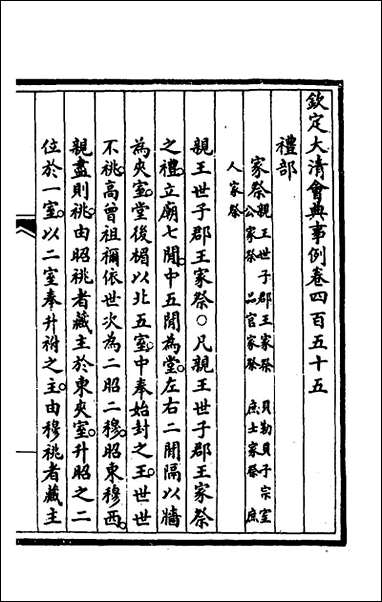 欽定大清會典事例卷四百五十五
禮部
家祭親王世子郡王家祭 貝勒貝子宗室
公家祭 品官家祭 庶士家祭 庶
人家祭
親王世子郡王家祭○凡親王世子郡王家祭
之禮。立廟七間。中五間為堂。左右二間隔以牆
為夾室。堂後楣以北五室。中奉始封之王。世世
不祧。高曾祖禰依世次為二昭二穆。昭東穆西。
親盡則祧。由昭祧者藏主於東夾室。升昭之二
位於一室。以二室奉升祔之主。由穆祧者藏主